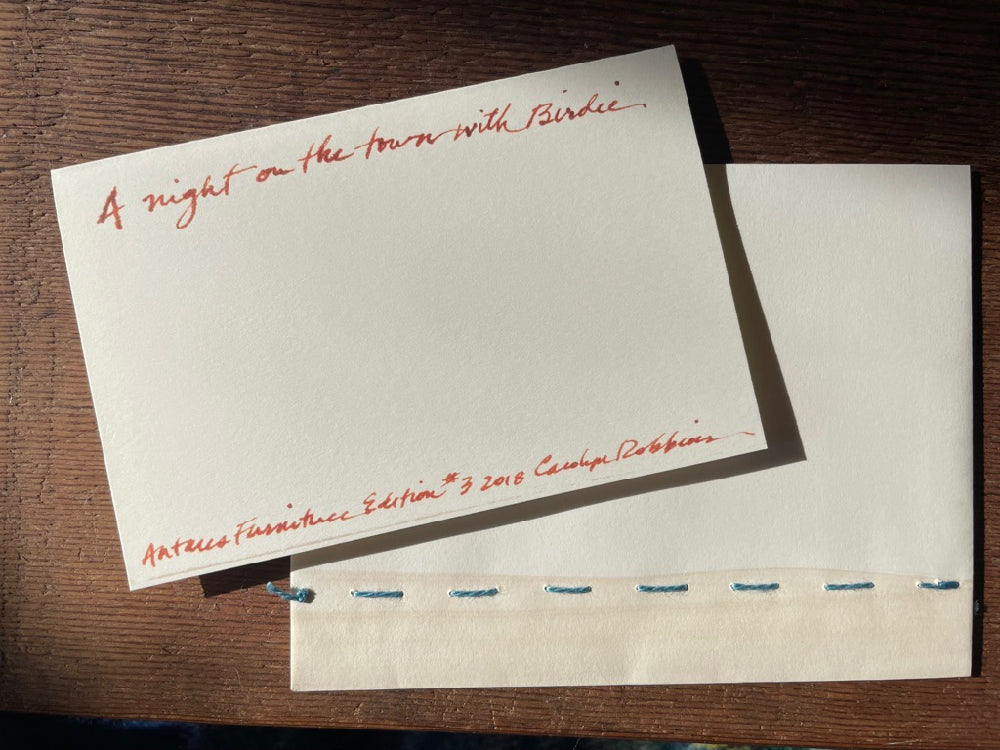 A night on the town with Birdie
Antares Furniture Edition #3 2018 Carolyn Robbins